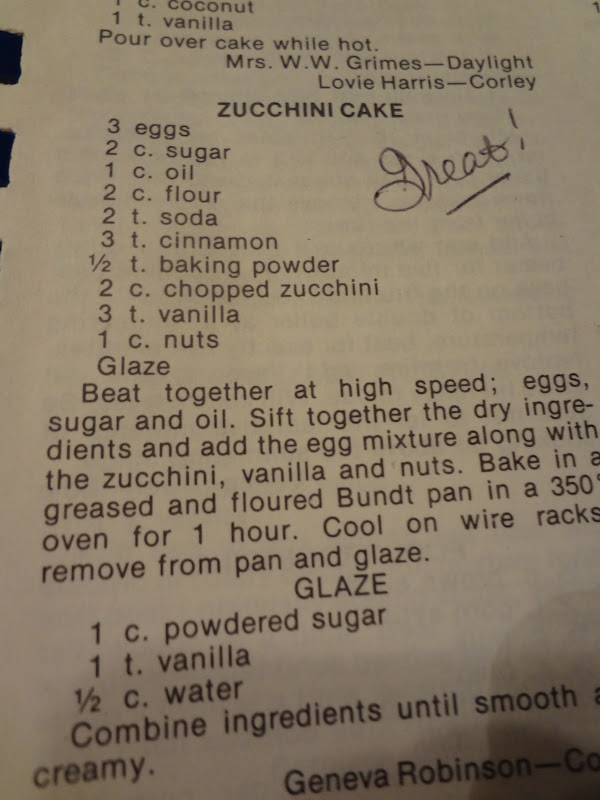 1 c. coconut
1 t. vanilla
Pour over cake while hot.
Mrs. W.W. Grimes—Daylight
Lovie Harris—Corley
ZUCCHINI CAKE
3 eggs
2 c. sugar
Great!
1 c. oil
2 c. flour
2 t. soda
3 t. cinnamon
½ t. baking powder
2 c. chopped zucchini
3 t. vanilla
1 c. nuts
Glaze
Beat together at high speed; eggs,
sugar and oil. Sift together the dry ingre-
dients and add the egg mixture along with
the zucchini, vanilla and nuts. Bake in a
greased and floured Bundt pan in a 350°
oven for 1 hour. Cool on wire racks
remove from pan and glaze.
GLAZE
1 c. powdered sugar
1 t. vanilla
½ c. water
Combine ingredients until smooth
creamy.
Geneva Robinson—Co